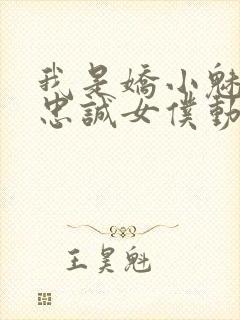 我是嬌小魅
忠誠女僕動
王昊魁